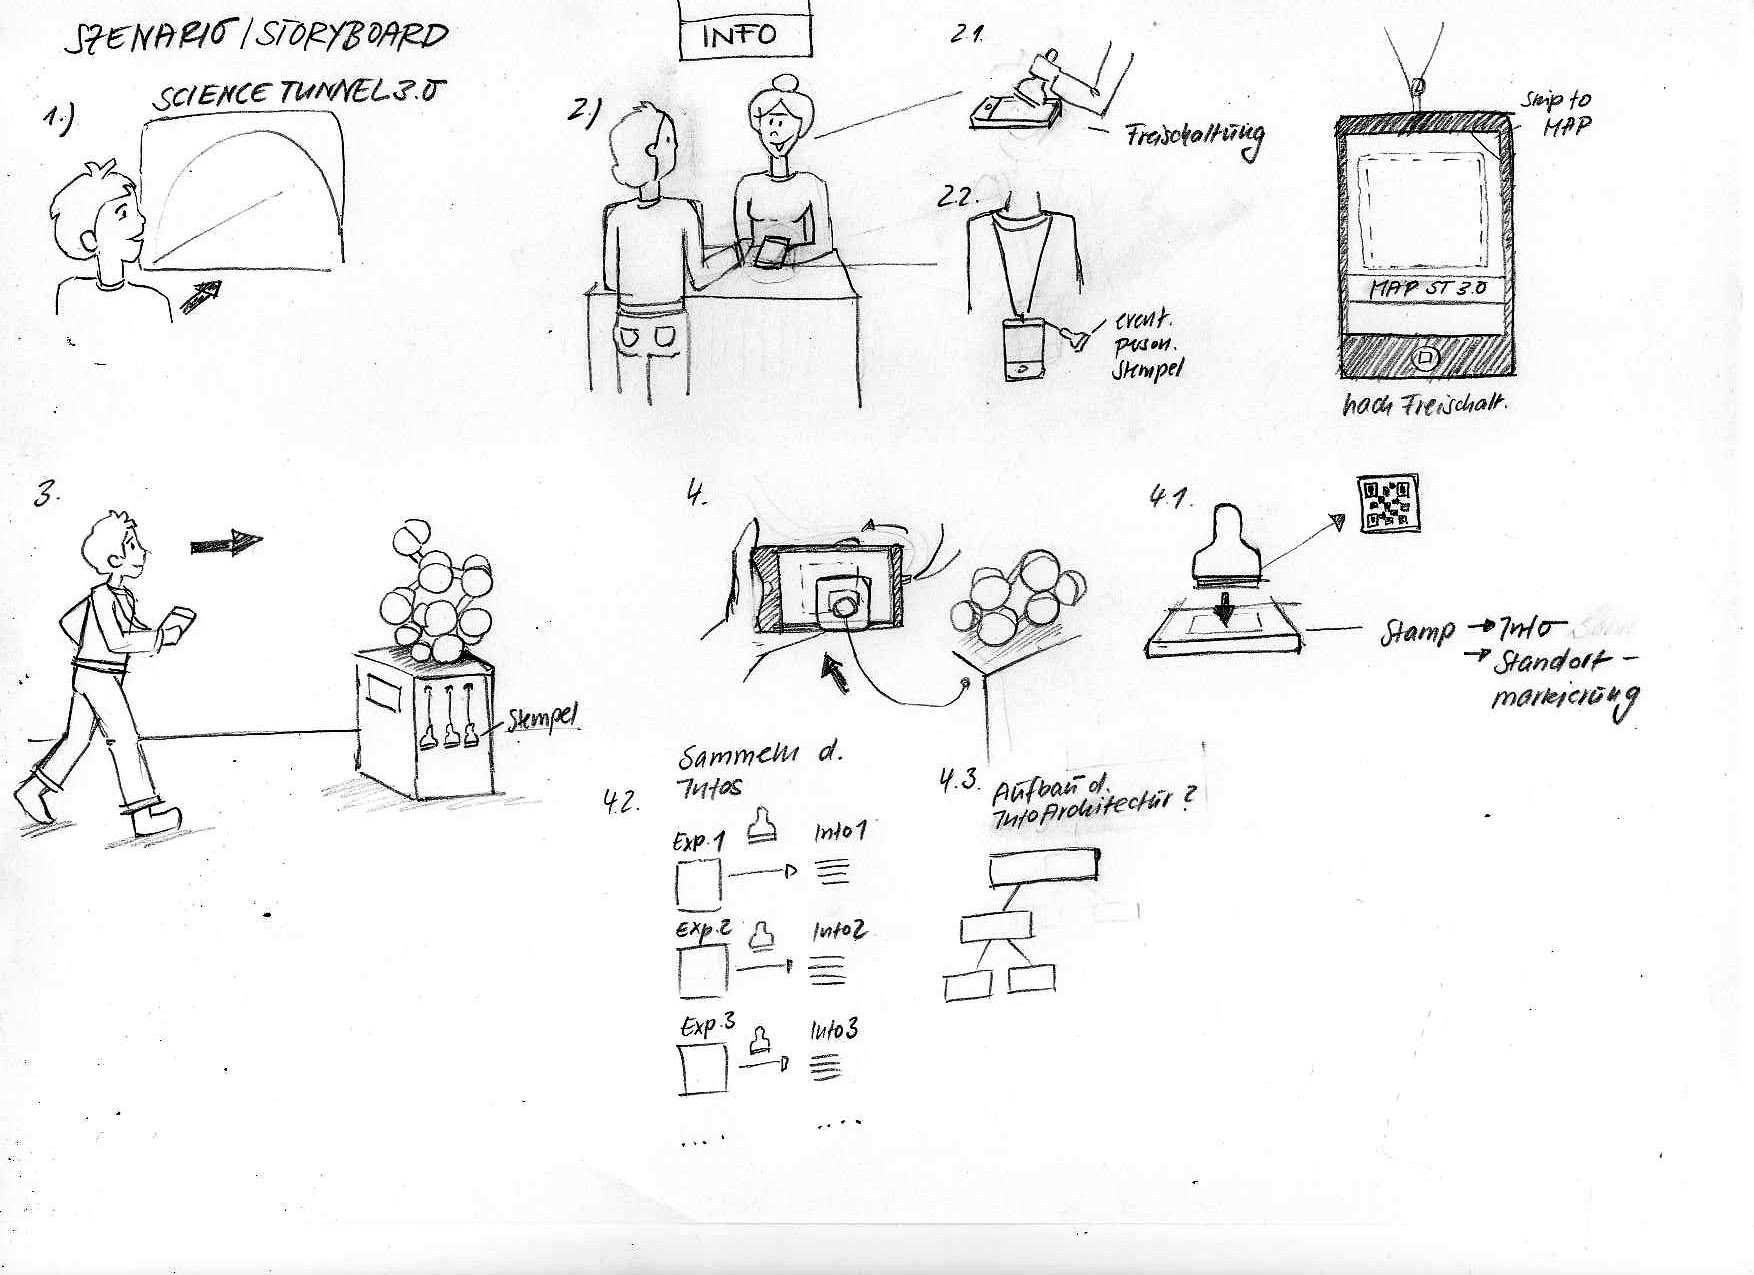 SZENARIO / STORYBOARD
SCIENCE TUNNEL 3.0
1.)
2.)
INFO
2.1.
Freischaltung
2.2.
event.
person.
Stempel
Skip to
MAP
MAP ST 3.0
nach Freischalt.
3.
Stempel
4.
4.1.
Stamp → Info
→ Standort-
markierung
4.2.
Sammeln d.
Infos
Exp. 1
Info 1
Exp. 2
Info 2
Exp. 3
Info 3
....
....
4.3.
Aufbau d.
Info Architektur?